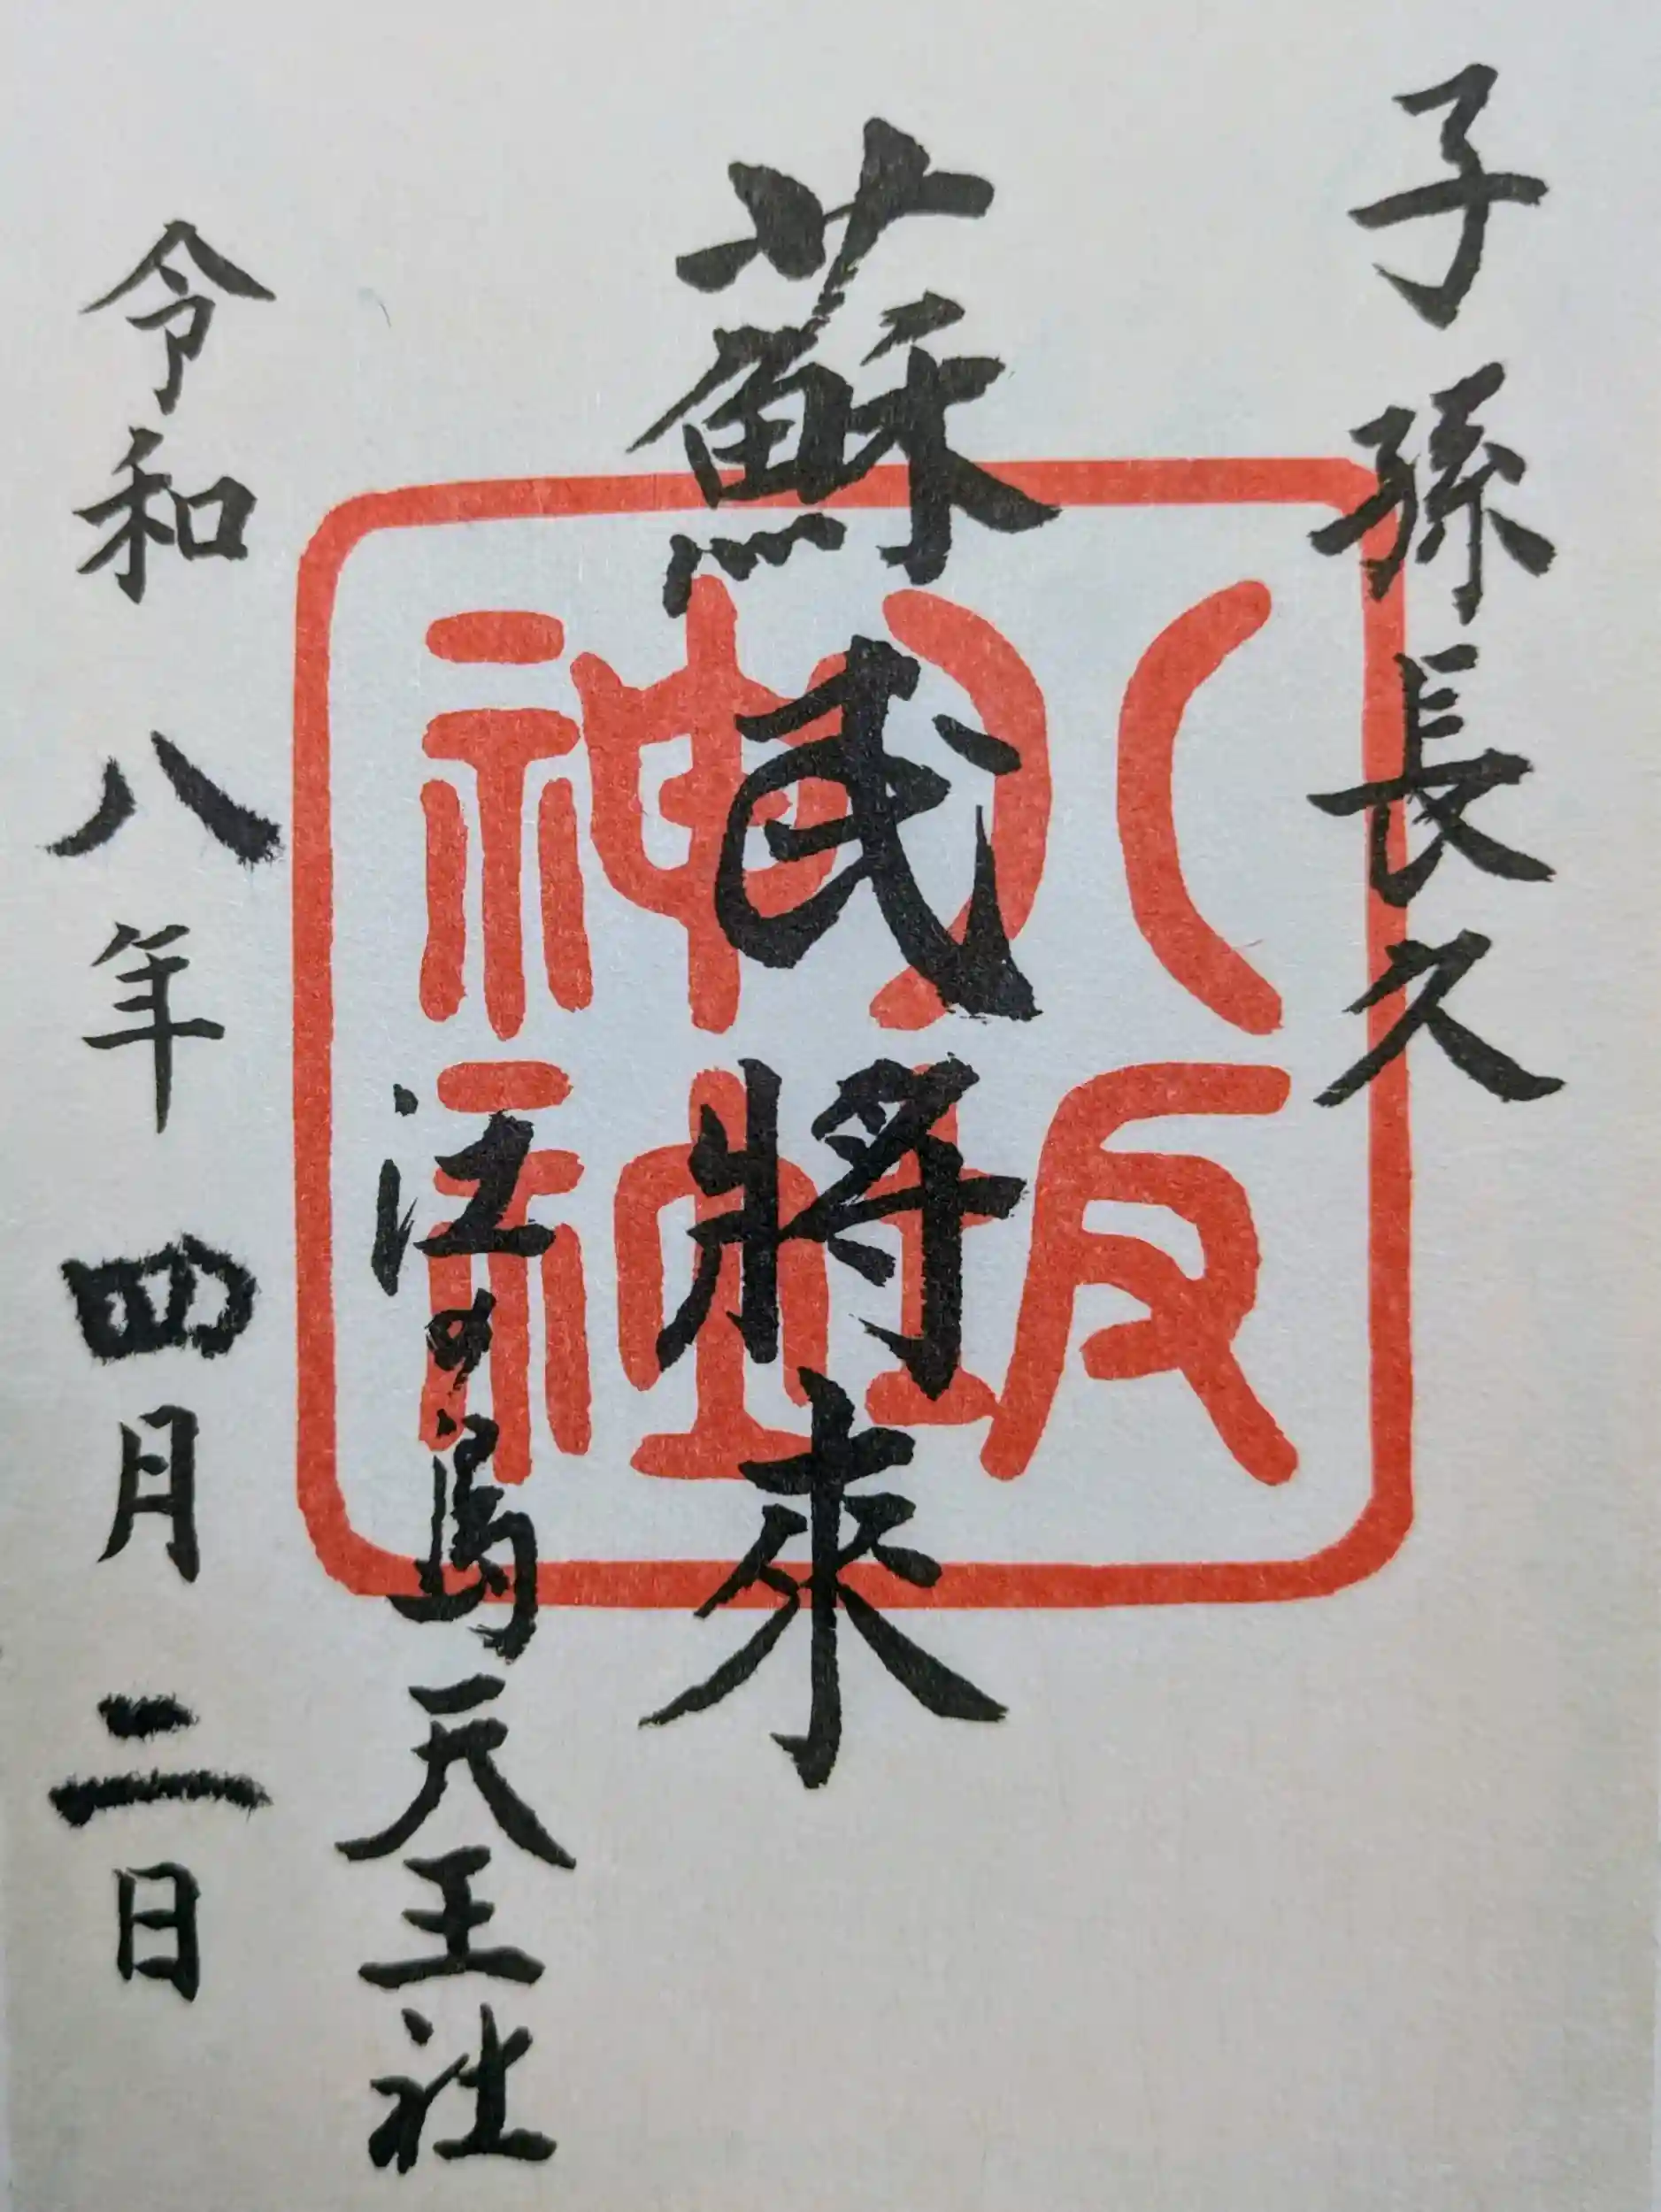 子孫長久
蘇民將來
八坂神社
江の島天王社
令和八年四月二日